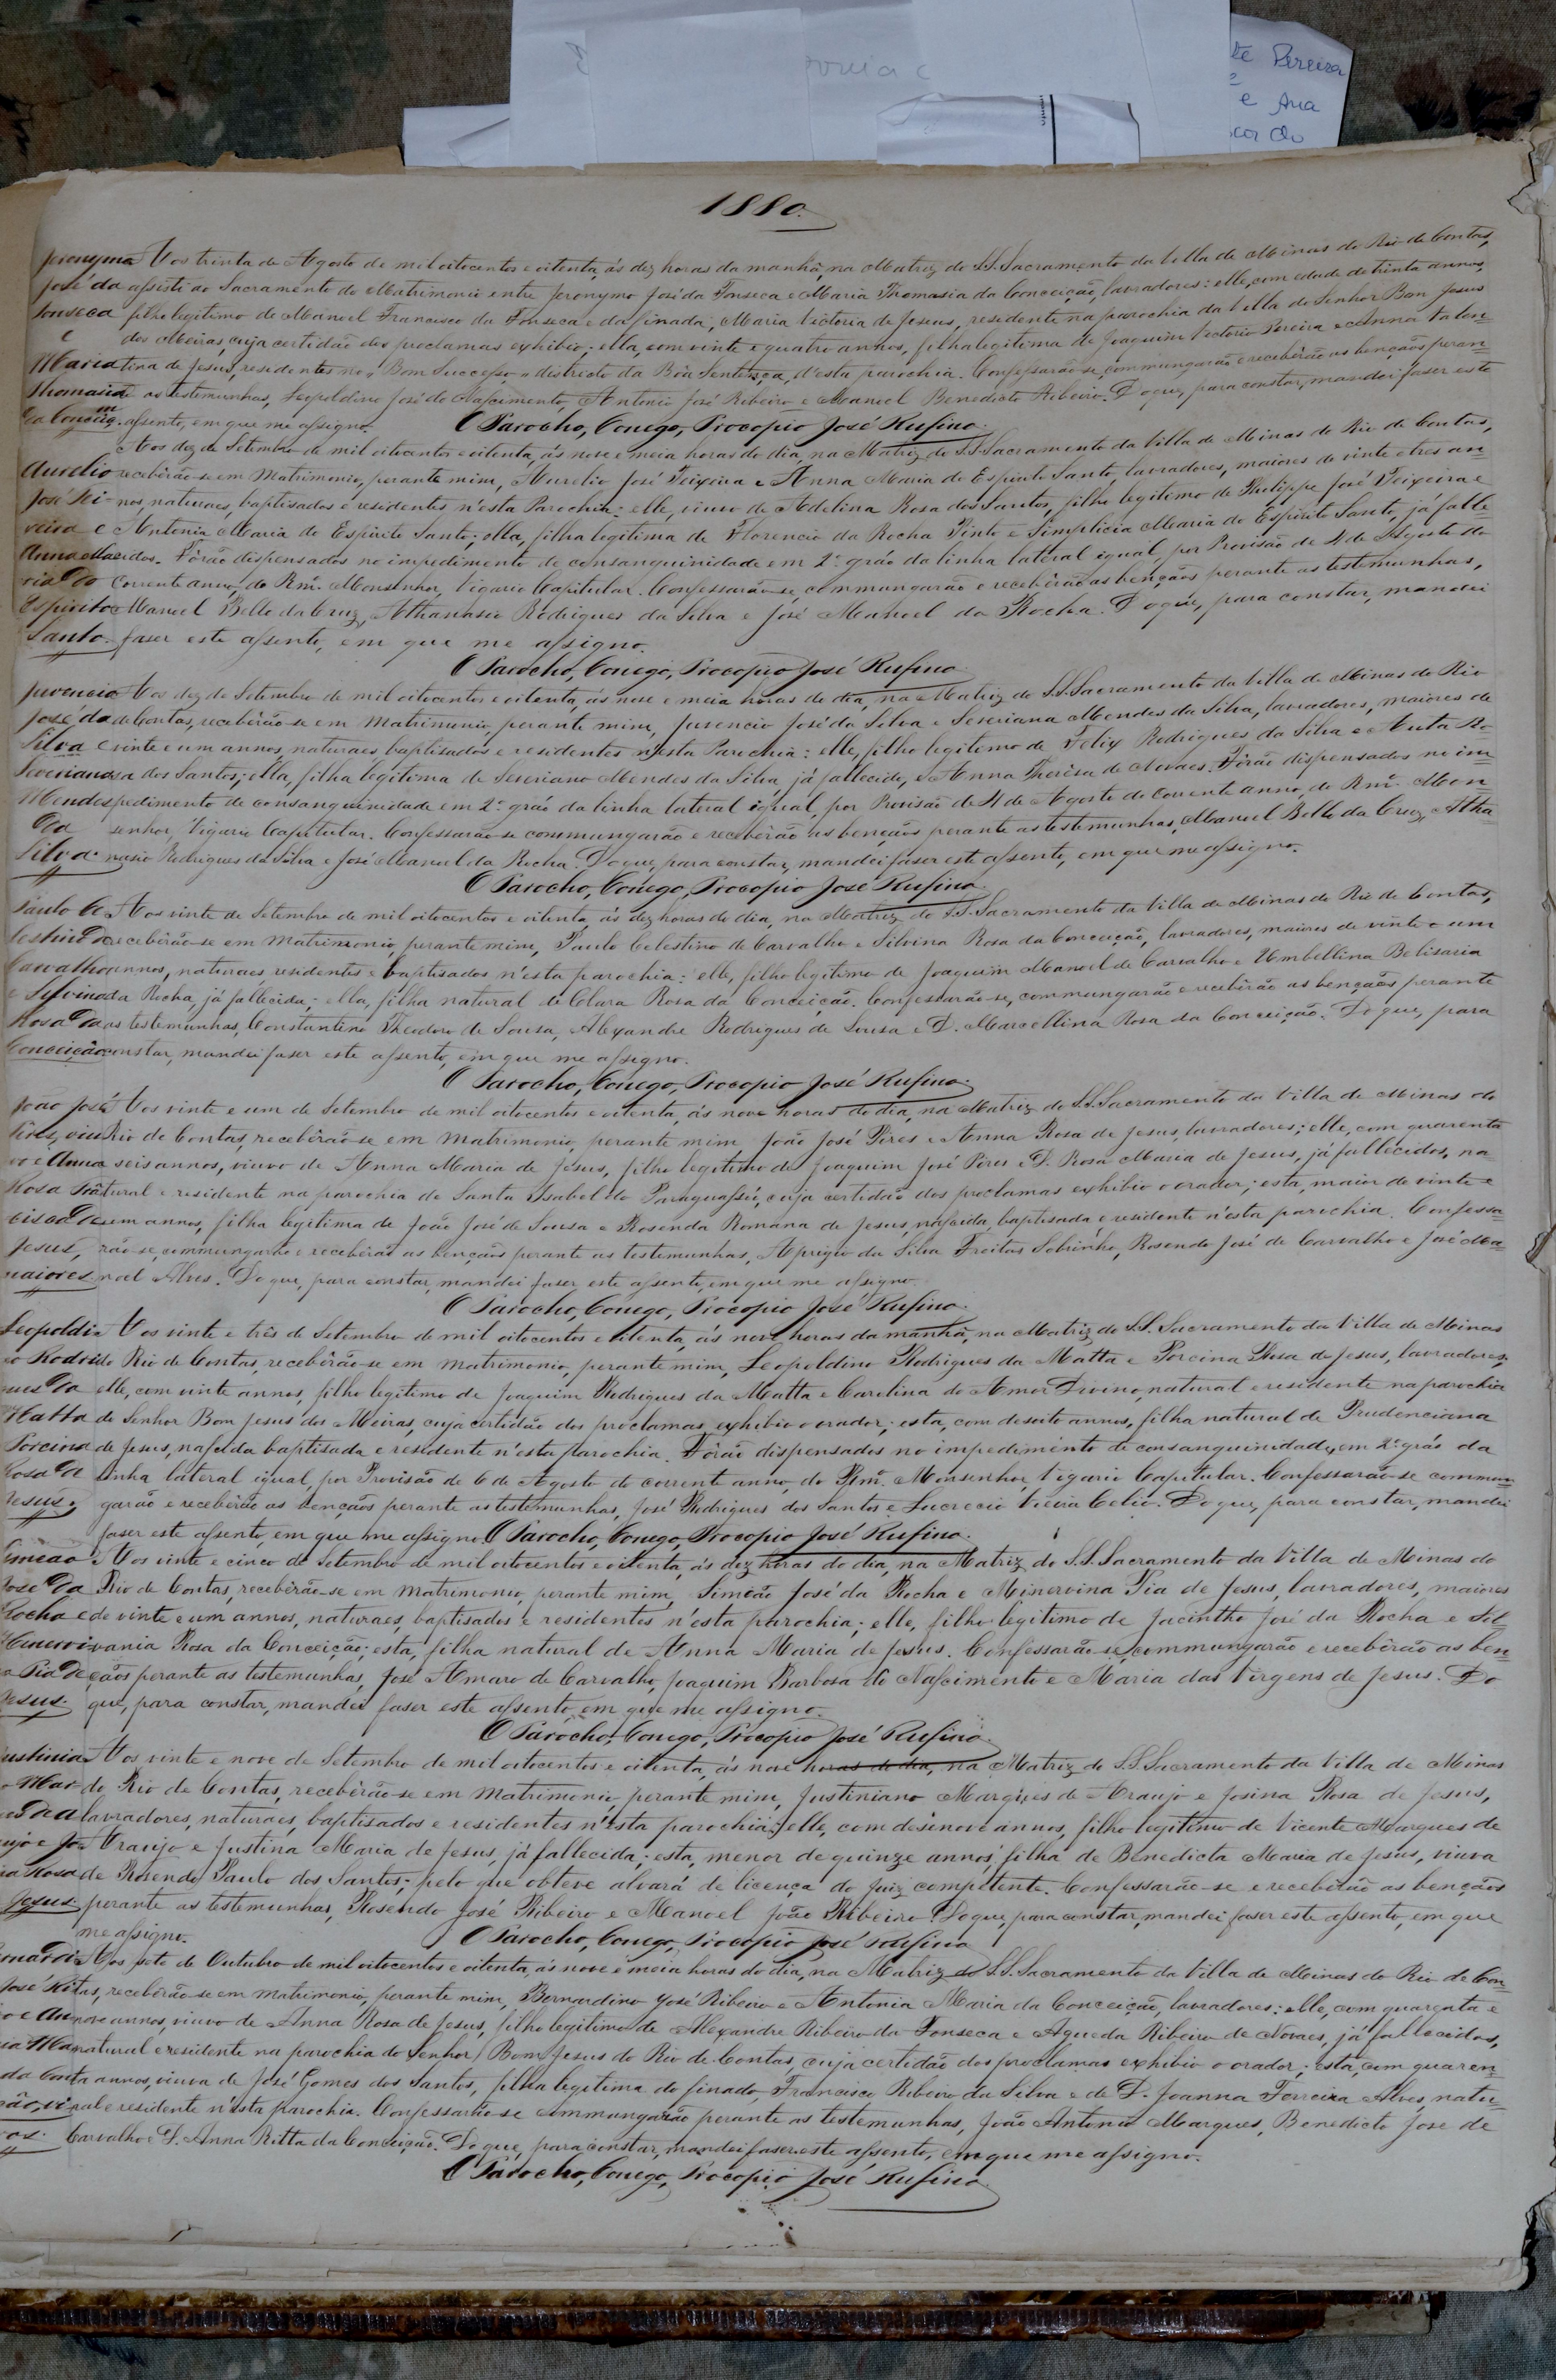 te Pereira
e Ana
cor do
1880.
Jeronymo Aos trinta de Agosto de mil oitocentos e oitenta, ás dez horas da manhã, na Matriz do S.S. Sacramento da Villa de Minas do Rio de Contas,
José da assisti ao Sacramento do Matrimonio entre Jeronymo José da Fonseca e Maria Thomasia da Conceição, lavradores: elle, com edade de trinta annos,
Fonseca filho legitimo de Manoel Francisco da Fonseca e da finada, Maria Victoria de Jesus, residente na parochia da Villa do Senhor Bom Jesus
e dos Meiras, cuja certidão dos proclamas exhibio; ella, com vinte e quatro annos, filha legitima de Joaquim Victorio Pereira e Anna Valen-
Maria tina de Jesus, residentes no "Bom Successo" districto da Bôa Sentença, d'esta parochia. Confessarão-se, commungarão e receberão as bençãos peran-
Thomasia te as testemunhas, Leopoldino José do Nascimento, Antonio José Ribeiro e Manoel Benedicto Ribeiro. Do que, para constar, mandei faser este
da Conceiç.m assento, em que me assigno. O Parocho, Conego, Procopio José Rufino.
Aos dez de Setembro de mil oitocentos e oitenta, ás nove e meia horas do dia, na Matriz do S.S. Sacramento da Villa de Minas do Rio de Contas,
Aurelio receberão-se em Matrimonio, perante mim, Aurelio José Teixeira e Anna Maria do Espirito Santo, lavradores, maiores de vinte e tres an-
José Tei- nos, naturaes, baptisados e residentes n'esta Parochia: elle, viuvo de Adelina Rosa dos Santos, filho legitimo de Philippe José Teixeira e
xeira e Antonia Maria do Espirito Santo; ella, filha legitima de Florencio da Rocha Pinto e Simplicia Maria do Espirito Santo, já falle-
Anna Ma- cidos. Fôrão dispensados no impedimento de consanguinidade em 2.º gráo da linha lateral igual, por Provisão de 4 de Agosto do
ria do Corrente anno, do Rmº. Monsenhor, Vigario Capitular. Confessarão-se, commungarão e receberão as bençãos perante as testemunhas,
Espirito Manoel Bello da Cruz, Athanasio Rodrigues da Silva e José Manoel da Rocha. Do que, para constar, mandei
Santo. faser este assento, em que me assigno.
O Parocho, Conego, Procopio José Rufino.
Juvencio Aos dez de Setembro de mil oitocentos e oitenta, ás nove e meia horas do dia, na Matriz do S.S. Sacramento da Villa de Minas do Rio
José da de Contas, receberão-se em Matrimonio, perante mim, Juvencio José da Silva e Severiana Mendes da Silva, lavradores, maiores de
Silva e vinte e um annos, naturaes, baptisados e residentes n'esta Parochia: elle, filho legitimo de Felix Rodrigues da Silva e Auta Ro-
Severiana sa dos Santos; ella, filha legitima de Severiano Mendes da Silva, já fallecido, e Anna Theresa de Novaes. Fôrão dispensados no im-
Mendes pedimento de consanguinidade em 2.º gráo da linha lateral igual, por Provisão de 4 de Agosto do Corrente anno, do Rmº. Mon-
da senhor, Vigario Capitular. Confessarão-se commungarão e receberão as bençãos perante as testemunhas, Manoel Bello da Cruz, Atha-
Silva. nasio Rodrigues da Silva e José Manoel da Rocha. Do que, para constar, mandei faser este assento, em que me assigno.
O Parocho, Conego, Procopio José Rufino.
Paulo Ce- Aos vinte de Setembro de mil oitocentos e oitenta, ás dez horas do dia, na Matriz do S.S. Sacramento da Villa de Minas do Rio de Contas,
lestino de receberão-se em Matrimonio, perante mim, Paulo Celestino de Carvalho e Silvina Rosa da Conceição, lavradores, maiores de vinte e um
Carvalho annos, naturaes, residentes e baptisados n'esta parochia: elle, filho legitimo de Joaquim Manoel de Carvalho e Umbellina Belisaria
e Silvina da Rocha, já fallecida; ella, filha natural de Clara Rosa da Conceição. Confessarão-se, commungarão e receberão as bençãos perante
Rosa da as testemunhas, Constantino Theodoro de Sousa, Alexandre Rodrigues de Sousa e D. Marcellina Rosa da Conceição. Do que, para
Conceição constar, mandei faser este assento, em que me assigno.
O Parocho, Conego, Procopio José Rufino.
João José Aos vinte e um de Setembro de mil oitocentos e oitenta, ás nove horas do dia, na Matriz do S.S. Sacramento da Villa de Minas do
Pires, viu- Rio de Contas, receberão-se em Matrimonio, perante mim João José Pires e Anna Rosa de Jesus, lavradores; elle, com quarenta
vo e Anna seis annos, viuvo de Anna Maria de Jesus, filho legitimo de Joaquim José Pires e D. Rosa Maria de Jesus, já fallecidos, na-
Rosa tural e residente na parochia de Santa Isabel do Paraguassú, cuja certidão dos proclamas exhibio o orador; esta, maior de vinte e
de um annos, filha legitima de João José de Sousa e Rosenda Romana de Jesus, nascida, baptisada e residente n'esta parochia. Confessa-
Jesus, rão-se, commungarão e receberão as bençãos perante as testemunhas, Aprigio da Silva Freitas Sobrinho, Rosendo José de Carvalho e José Ma-
maiores noel Alves. Do que, para constar, mandei faser este assento, em que me assigno.
O Parocho, Conego, Procopio José Rufino.
Leopoldi- Aos vinte e três de Setembro de mil oitocentos e oitenta, ás nove horas da manhã, na Matriz do S.S. Sacramento da Villa de Minas
no Rodri- do Rio de Contas, receberão-se em matrimonio, perante mim, Leopoldino Rodrigues da Matta e Porcina Rosa de Jesus, lavradores;
gues da elle, com vinte annos, filho legitimo de Joaquim Rodrigues da Matta e Carolina do Amor Divino, natural e residente na parochia
Matta do Senhor Bom Jesus dos Meiras, cuja certidão dos proclamas exhibio o orador; esta, com desoito annos, filha natural de Prudenciana
Porcina de Jesus, nascida baptisada e residente n'esta parochia. Fôrão dispensados no impedimento de consanguinidade, em 2.º gráo da
Rosa de linha lateral igual, por Provisão de 6 de Agosto do corrente anno, do Rmº. Monsenhor, Vigario Capitular. Confessarão-se commun-
Jesus. garão e receberão as bençãos perante as testemunhas, José Rodrigues dos Santos e Lucrecio Vieira Celio. Do que, para constar, mandei
faser este assento, em que me assigno. O Parocho, Conego, Procopio José Rufino.
Simeão Aos vinte e cinco de Setembro de mil oitocentos e oitenta, ás dez horas do dia, na Matriz do S.S. Sacramento da Villa de Minas do
José da Rio de Contas, receberão-se em Matrimonio, perante mim, Simeão José da Rocha e Minervina Pia de Jesus, lavradores, maiores
Rocha e de vinte e um annos, naturaes, baptisados e residentes n'esta parochia; elle, filho legitimo de Jacintho José da Rocha e Sil-
Minervi- vania Rosa da Conceição; esta, filha natural de Anna Maria de Jesus. Confessarão-se, commungarão e receberão as ben-
na Pia de çãos perante as testemunhas, José Amaro de Carvalho, Joaquim Barbosa do Nascimento e Maria das Virgens de Jesus. Do
Jesus. que, para constar, mandei faser este assento, em que me assigno.
O Parocho, Conego, Procopio José Rufino.
Justinia- Aos vinte e nove de Setembro de mil oitocentos e oitenta, ás nove horas do dia, na Matriz do S.S. Sacramento da Villa de Minas
no Mar- do Rio de Contas, receberão-se em Matrimonio, perante mim, Justiniano Marques de Araujo e Josina Rosa de Jesus,
ques de A lavradores, naturaes, baptisados e residentes n'esta parochia; elle, com desenove annos, filho legitimo de Vicente Marques de
raujo e Jo- Araujo e Justina Maria de Jesus, já fallecida; esta, menor de quinze annos, filha de Benedicta Maria de Jesus, viuva
sina Rosa de Rosendo Paulo dos Santos; pelo que obteve alvará de licença do Juiz competente. Confessarão-se e receberão as bençãos
Jesus. perante as testemunhas, Rosendo José Ribeiro e Manoel João Ribeiro. Do que, para constar, mandei faser este assento, em que
me assigno. O Parocho, Conego, Procopio José Rufino
Bernardi- Aos sete de Outubro de mil oitocentos e oitenta, ás nove e meia horas do dia, na Matriz do S.S. Sacramento da Villa de Minas do Rio de Con-
José Ri- tas, receberão-se em matrimonio, perante mim, Bernardino José Ribeiro e Antonia Maria da Conceição, lavradores: elle, com quarenta e
o e An- nove annos, viuvo de Anna Rosa de Jesus, filho legitimo de Alexandre Ribeiro da Fonseca e Agueda Ribeiro de Novaes, já fallecidos,
ia Ma- natural e residente na parochia do Senhor Bom Jesus do Rio de Contas, cuja certidão dos proclamas exhibio o orador; esta, com quaren-
da Con- ta annos, viuva de José Gomes dos Santos, filha legitima do finado, Francisco Ribeiro da Silva e de D. Joanna Ferreira Alves, natu-
ção, vi- ral e residente n'esta parochia. Confessarão-se commungarão perante as testemunhas, João Antonio Marques, Benedicto José de
os. Carvalho e D. Anna Ritta da Conceição. Do que, para constar, mandei faser este assento, em que me assigno.
O Parocho, Conego, Procopio José Rufino.